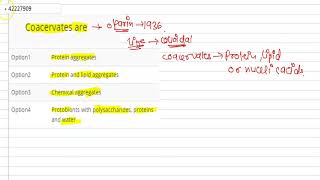 42227909
Coacervates are → oparin → 1936.
line → colloidal
coacervates → Protein, lipid
or nucleic acids.
Option1 Protein aggregates
Option2 Protein and lipid aggregates
Option3 Chemical aggregates
Option4 Protobionts with polysaccharides, proteins
and water